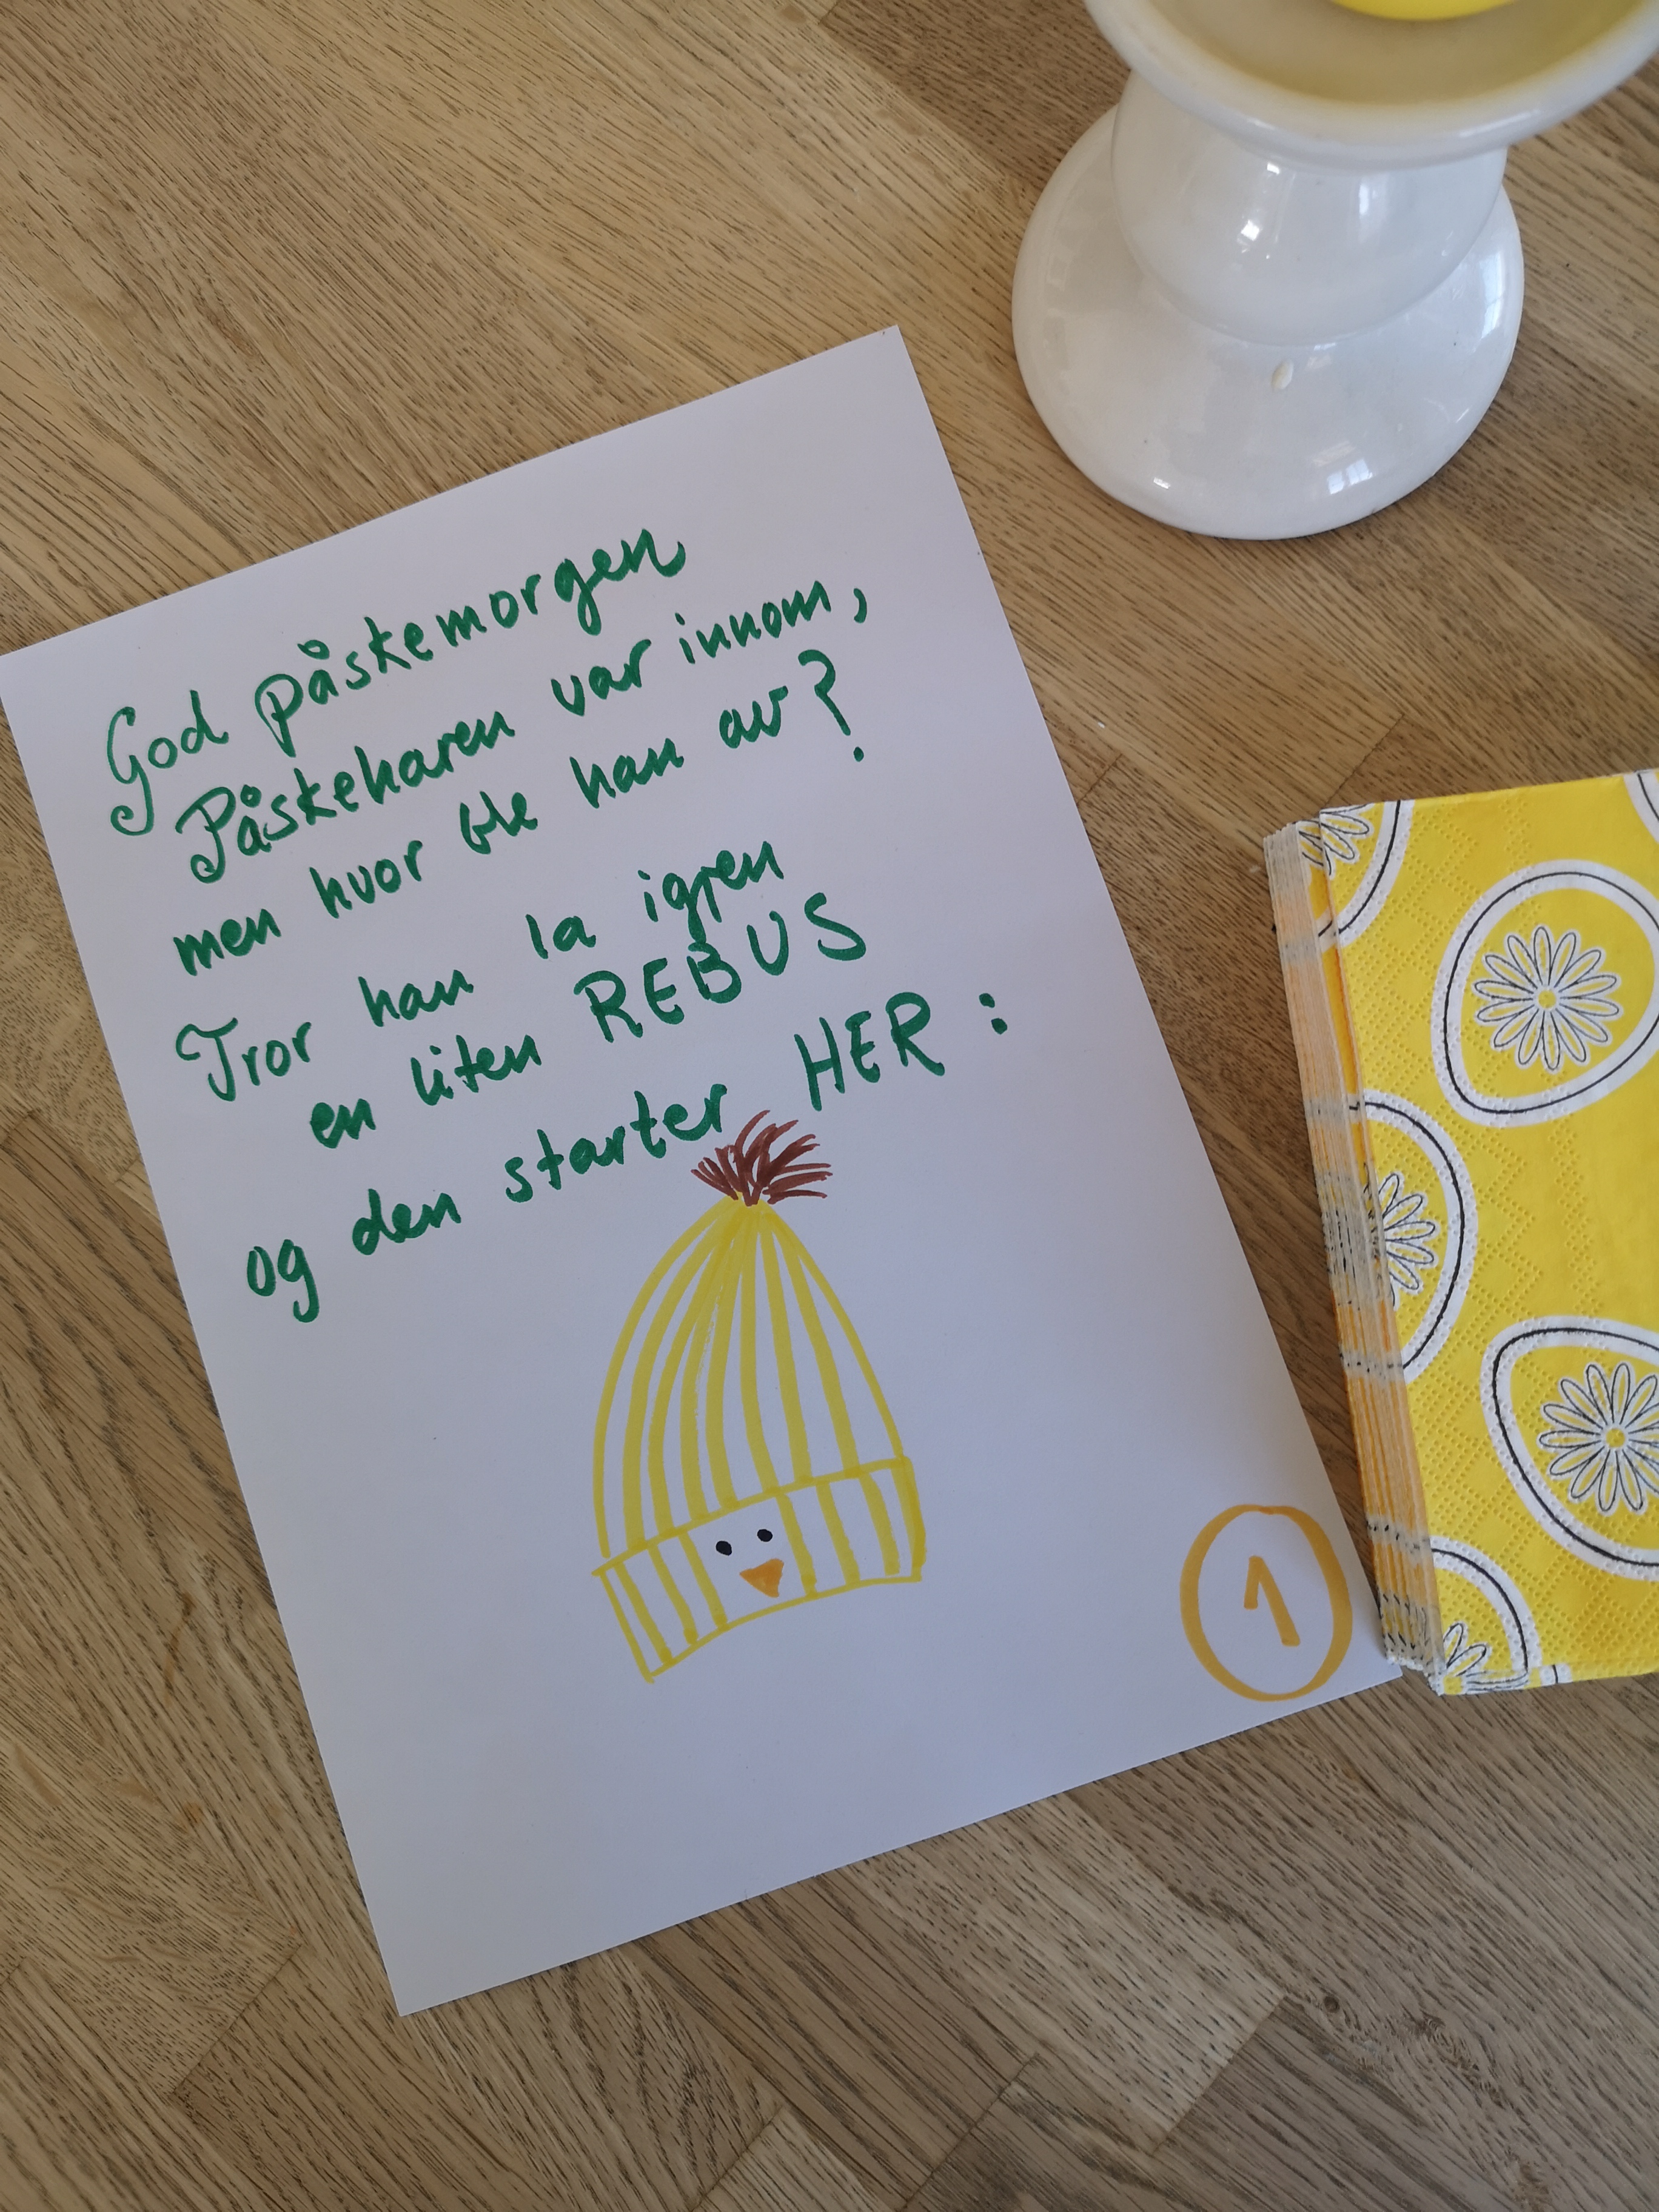 God påskemorgen
Påskeharen var innom,
men hvor ble han av?
Tror han la igjen
en liten REBUS
og den starter HER:
1